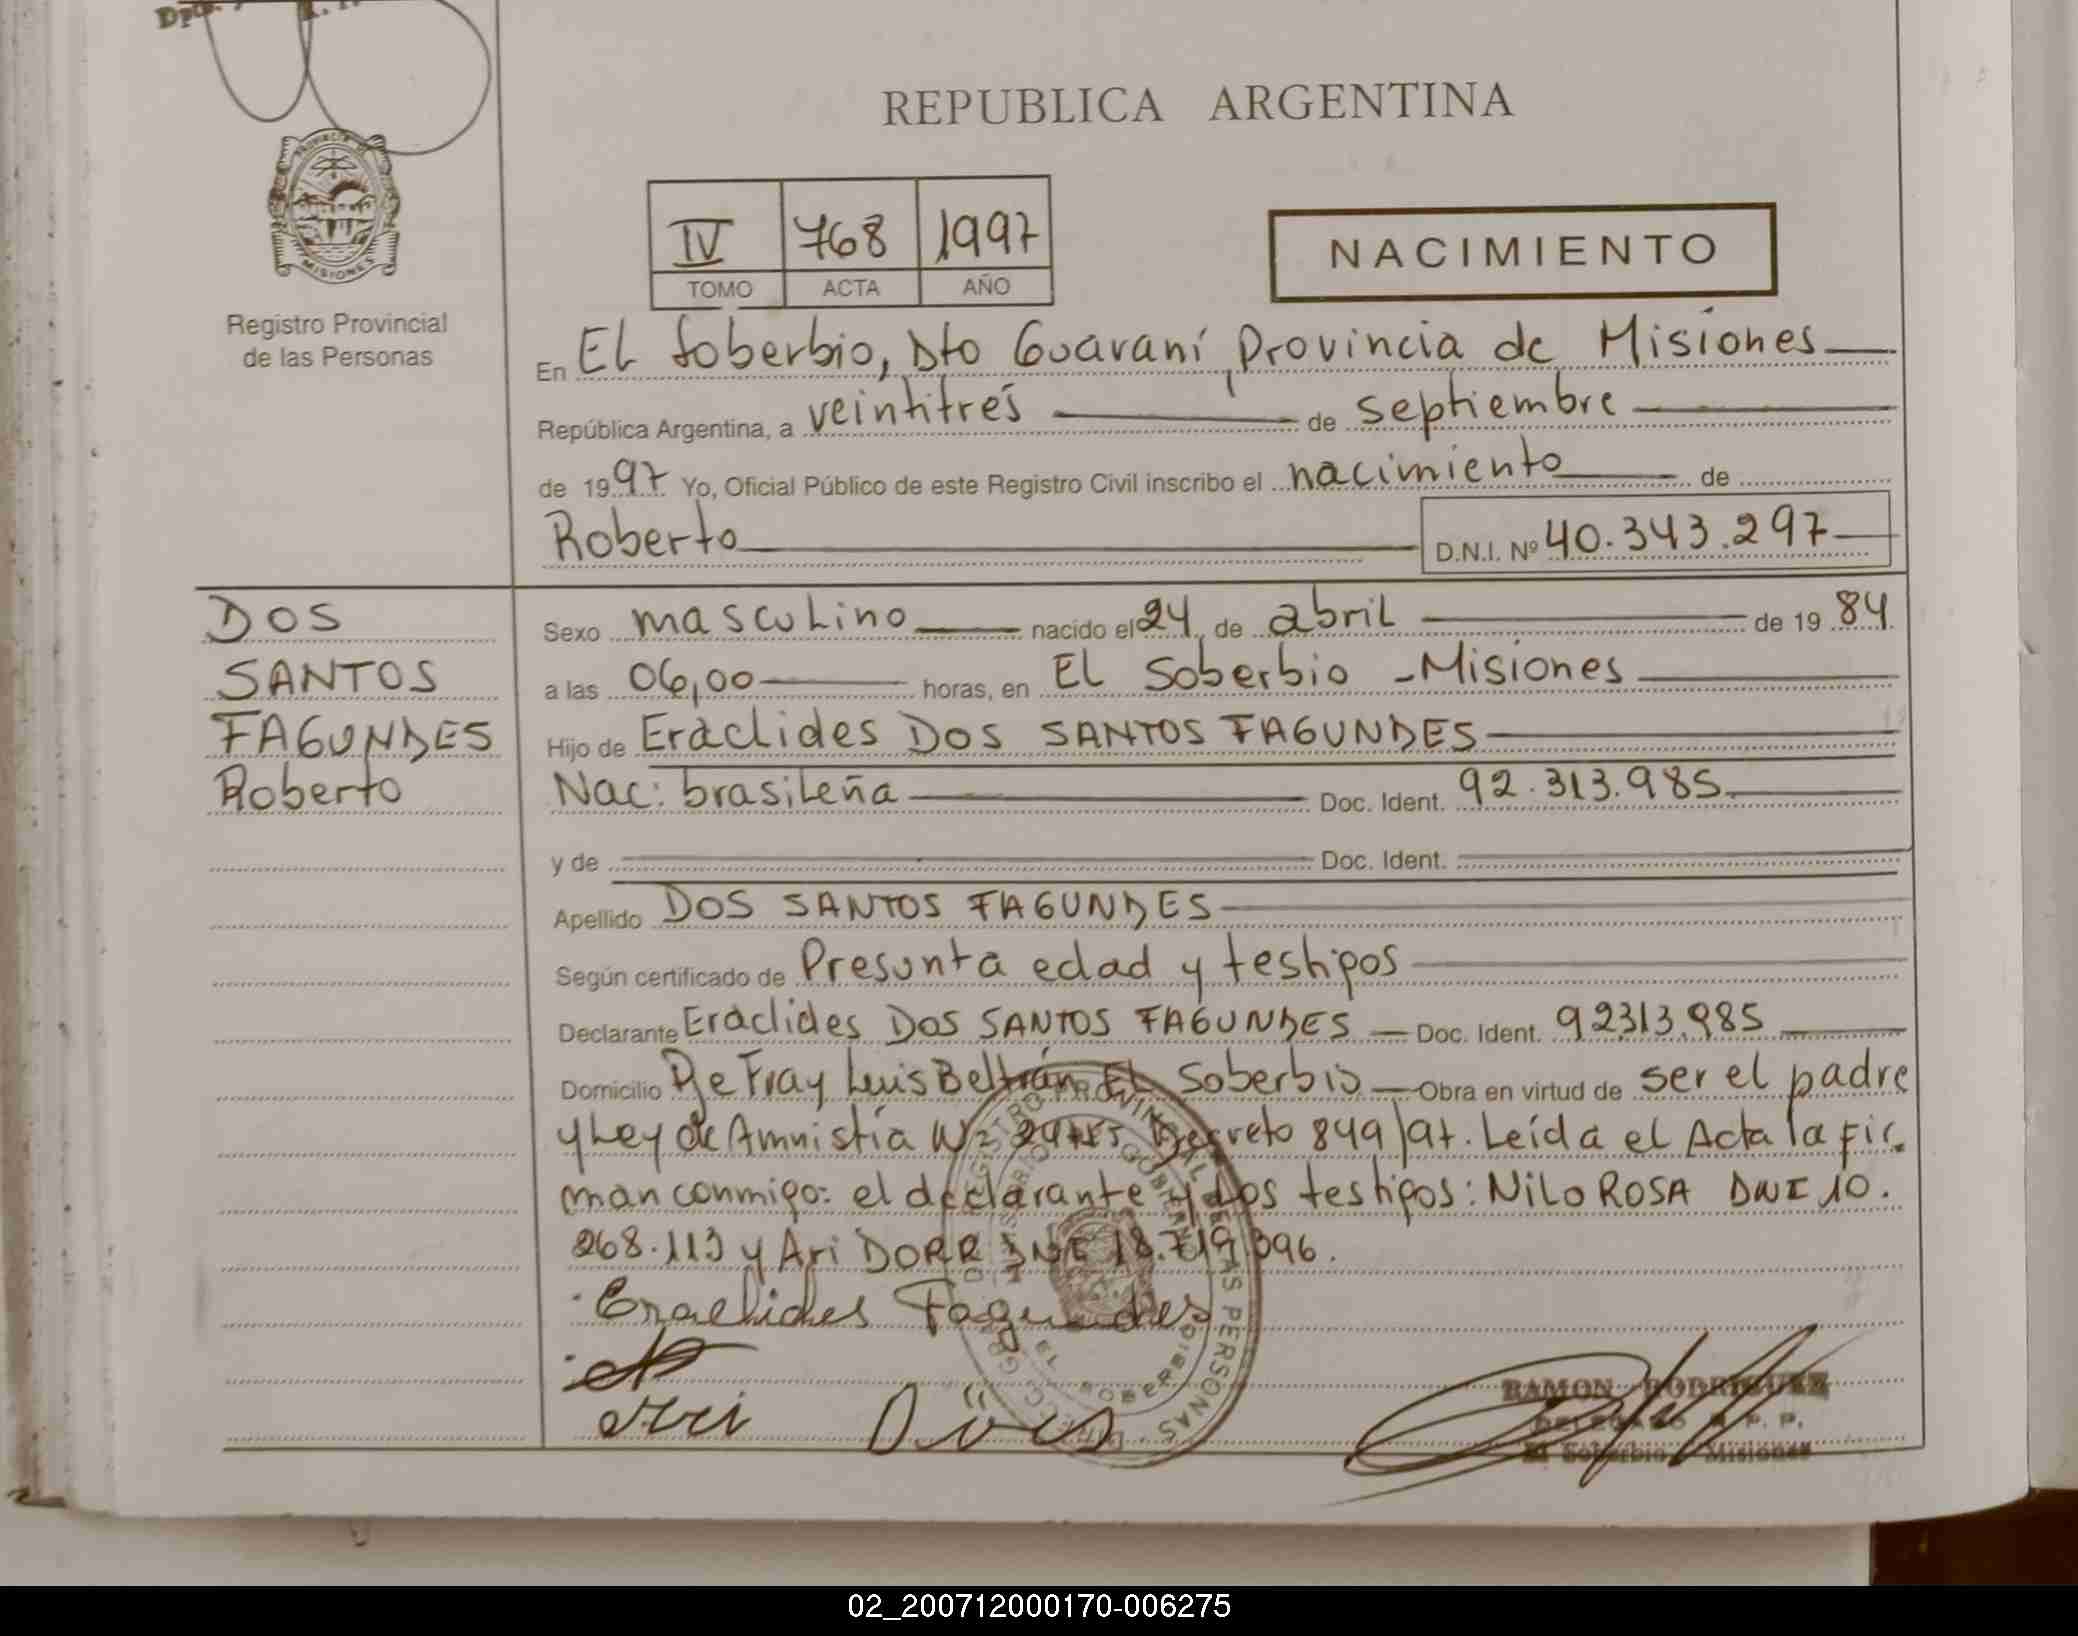 REPUBLICA ARGENTINA
PROVINCIA DE
MISIONES
Registro Provincial
de las Personas
IV 768 1997
TOMO ACTA AÑO
NACIMIENTO
En El Soberbio, Dto Guaraní, Provincia de Misiones
República Argentina, a veintitrés de septiembre
de 1997 Yo, Oficial Público de este Registro Civil inscribo el nacimiento de
Roberto D.N.I. Nº 40.343.297
DOS
SANTOS
FAGUNDES
Roberto
Sexo masculino nacido el 24 de abril de 1984
a las 06,00 horas, en El Soberbio - Misiones
Hijo de Eraclides DOS SANTOS FAGUNDES
Nac: brasileña Doc. Ident. 92.313.985
y de Doc. Ident.
Apellido DOS SANTOS FAGUNDES
Según certificado de Presunta edad y testigos
Declarante Eraclides DOS SANTOS FAGUNDES Doc. Ident. 92313.985
Domicilio Fray Luis Beltrán El Soberbio Obra en virtud de ser el padre
y Ley de Amnistía Decreto 849/97. Leída el Acta la fir
man conmigo: el declarante y los testigos: Nilo ROSA DNI 10.
268.113 y Ari DORR DNI 18.719.396.
Eraclides Fagundes
Ari
RAMON RODRIGUEZ
DELEGADO R. P. P.
El Soberbio Misiones
EL SOBERBIO
02_200712000170-006275